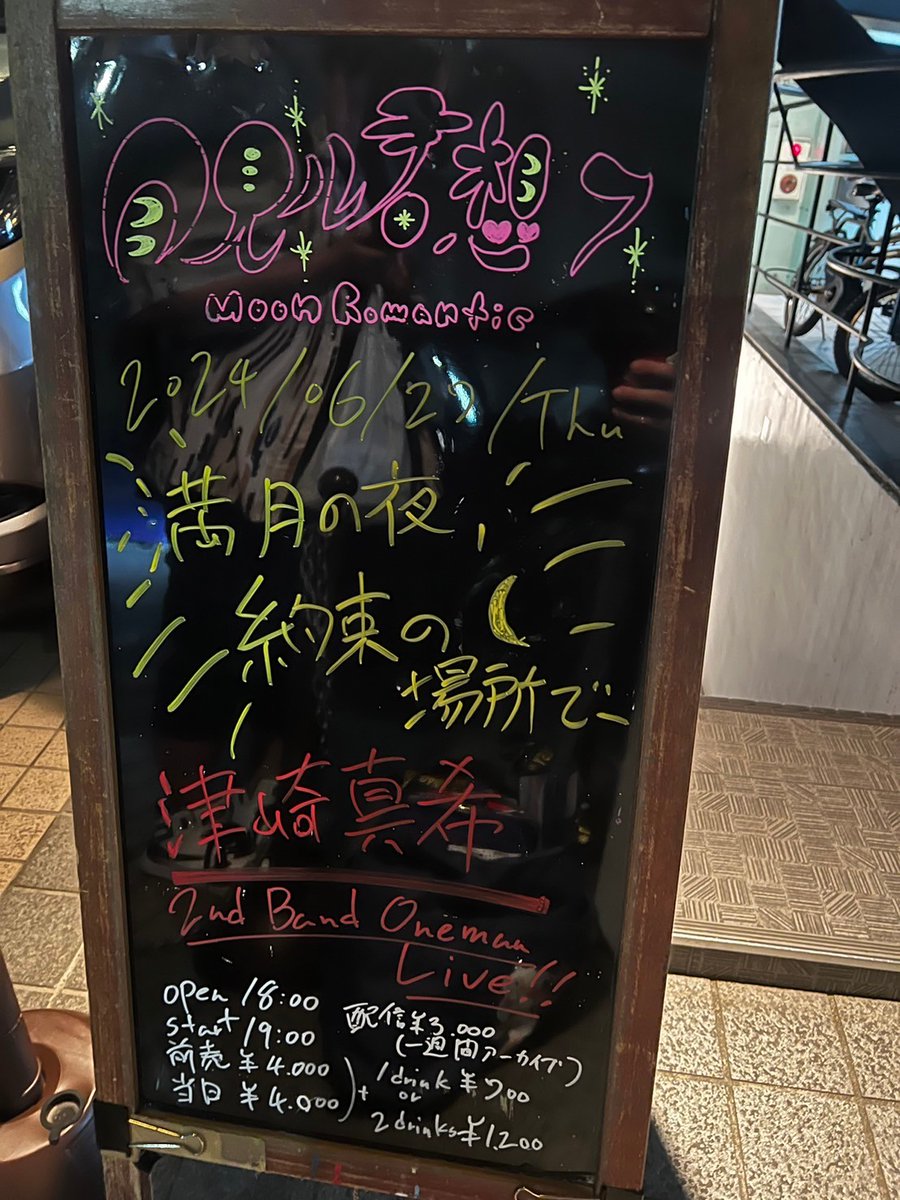 月見ル君想フ
Moon Romantic
2024/06/27/Thu
満月の夜、
約束の
場所で
津崎真希
2nd Band Oneman
Live!!
open 18:00
start 19:00
前売 ¥4.000
当日 ¥4.000
)+
配信¥3.000
(一週間アーカイブ)
1drink ¥700
or
2drinks¥1.200